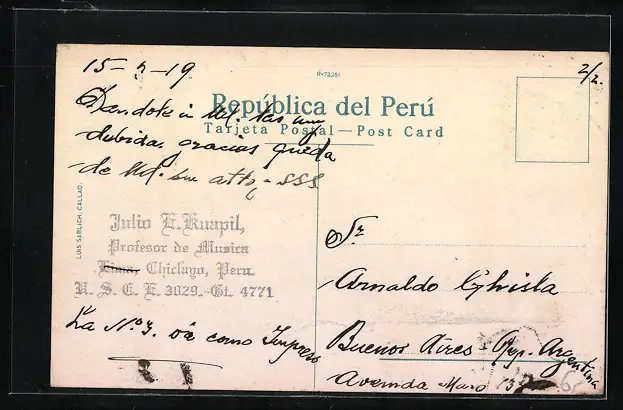 15-2-19
2/2.
R-73261
República del Perú
Tarjeta Postal — Post Card
Dandole a Ud. las muy
debidas gracias queda
de Ud. su atto, - SSS
LUIS SABLICH, CALLAO.
Julio E. Kuapil,
Profesor de Musica
Lima, Chiclayo, Peru.
U. S. C. E. 3029.-Gt. 4771
La No 3. va como Impreso
Sr
Arnaldo Ghisla
Buenor Aires - Rep. Argentina
Avenida Mayo